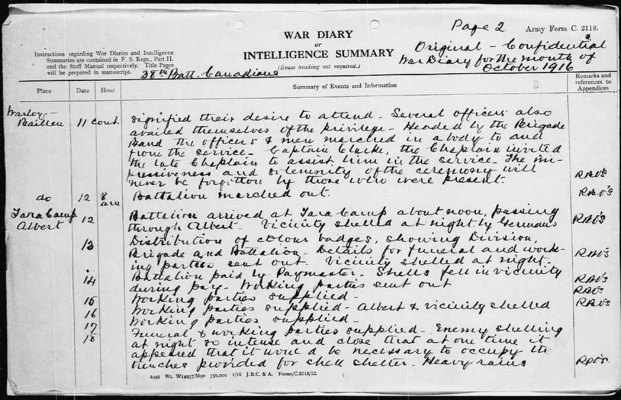 Page 2
WAR DIARY
Army Form C. 2118.
OR
INTELLIGENCE SUMMARY
Original - Confidential
War Diary for the month of
October 1916
Instructions regarding War Diaries and Intelligence
Summaries are contained in F. S. Regs., Part II.
and the Staff Manual respectively. Title Pages
will be prepared in manuscript.
(Erase heading not required.)
38th Batt. Canadians
Place Date Hour Summary of Events and Information Remarks and references to Appendices
Warloy- 11 cont. signified their desire to attend. Several officers also
Baillon availed themselves of the privilege - Headed by the Brigade
Band the officers & men marched in a body to and
from the service - Captain Clarke, the Chaplain invited
the late Chaplain to assist him in the service - The im-
pressiveness and solemnity of the ceremony will
never be forgotten by those who were present.
do 12 8 am Battalion marched out.
Tara Camp 12 Battalion arrived at Tara Camp about noon, passing
Albert through Albert. Vicinity shelled at night by Germans
13 Distribution of colour badges, showing Division,
Brigade and Battalion - Details for funeral and work-
ing parties sent out. Vicinity shelled at night.
14 Battalion paid by Paymaster. Shells fell in vicinity
during pay - Working parties sent out
15 Working parties supplied -
16 Working parties supplied - Albert & vicinity shelled
17 Working parties supplied -
18 Funeral & working parties supplied - Enemy shelling
at night so intense and close that at one time it
appeared that it would be necessary to occupy the
trenches provided for shell shelter. Heavy rains